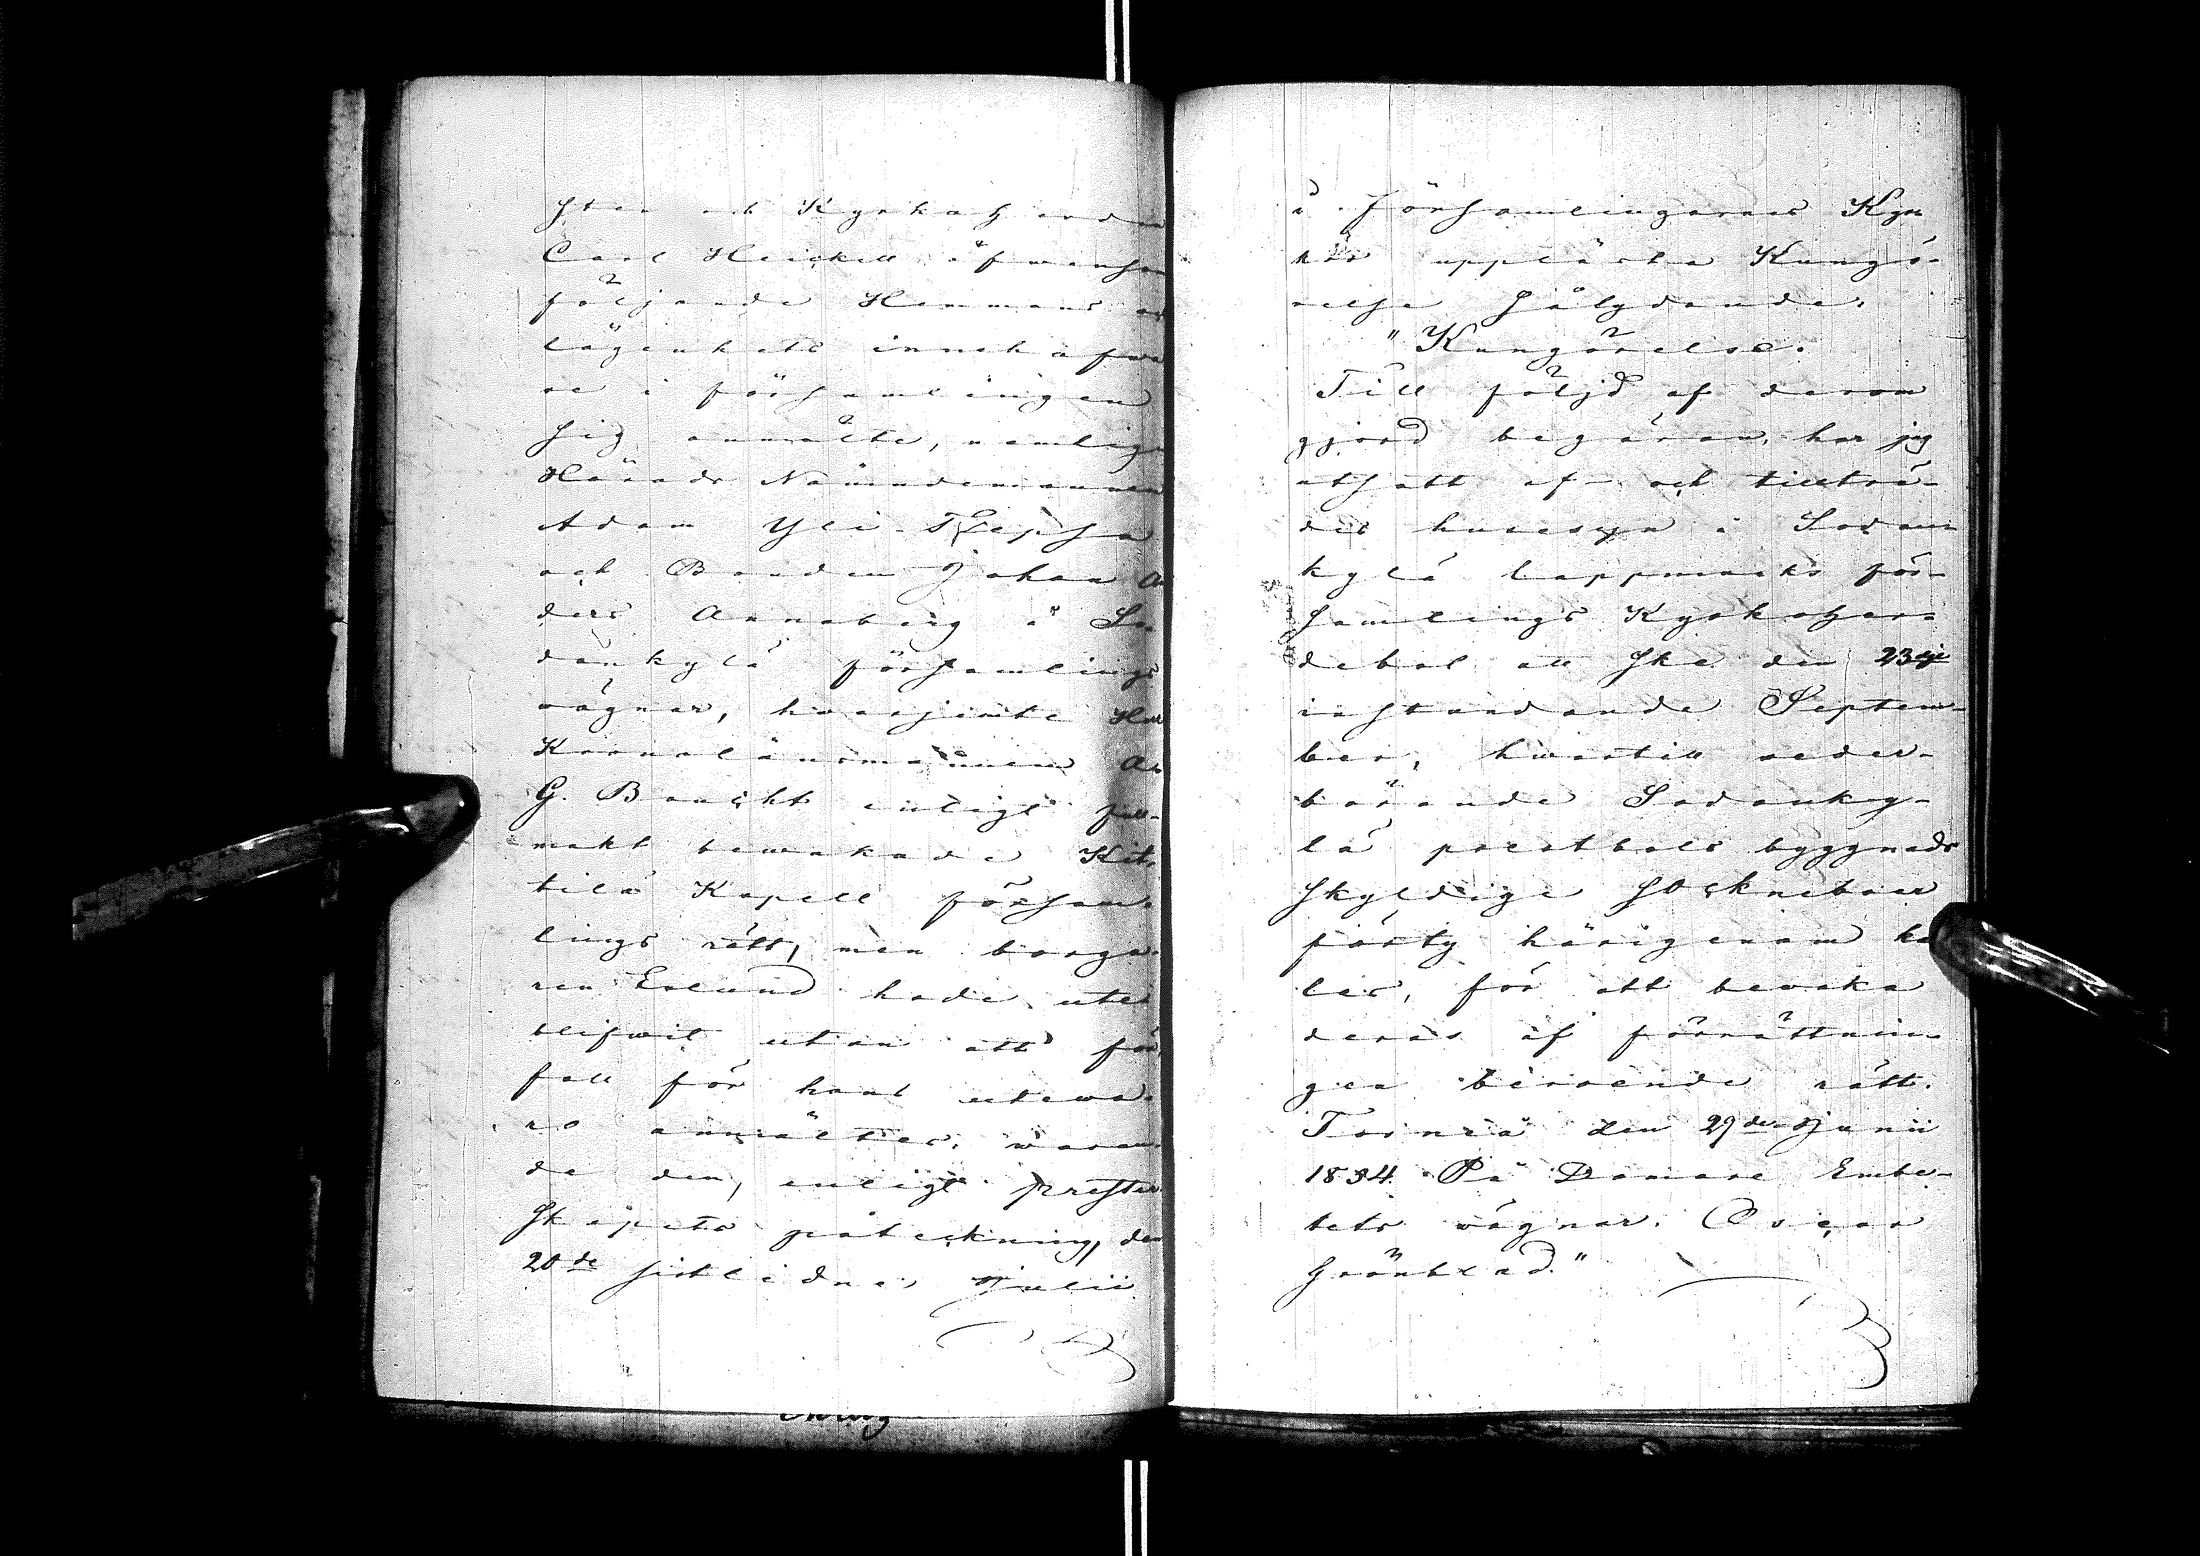 sten och Kyrkoherden
Carl Heickell äfvensom
följande Hemmans o
lägenhets innehafva
re i församlingen
sig anmälte, nemligen
Härads Nämndemannen
Adam Yli
och Bonden Johan An
ders Anneberg å So
dankylä församlings
vägnar, hvarjemte Herr
Kronolänsmannen
G. enligt full-
makt bevakade Kit-
tilä Kapell försam-
lings rätt, men borga-
ren Enlund hade ute
blifvit utan att för
fall för hans uteva-
ro anmältes, varan
de den, enligt prester
skapets påteckning, den
20de sistlidne Julii
å församlingarnes Kyr
kor upplästa Kungö-
relse sålydande.
"Kungörelse.
Till följd af derom
gjord begäran, har jag
utsatt af- och tillträ-
des husesyn i Sodan-
kylä lappmarks för-
samlings Kyrkoher-
debol att ske den 23dje
instundande Septem-
ber, hvartill veder-
börande Sodanky-
lä prestbols byggnads
skyldige socknebor
förty härigenom kal
les, för att bevaka
deras af förrättnin-
gen beroende rätt.
Torneå den 29de Junii
1894. På Domare Embe-
tets vägnar. Oscar
Grönblad."